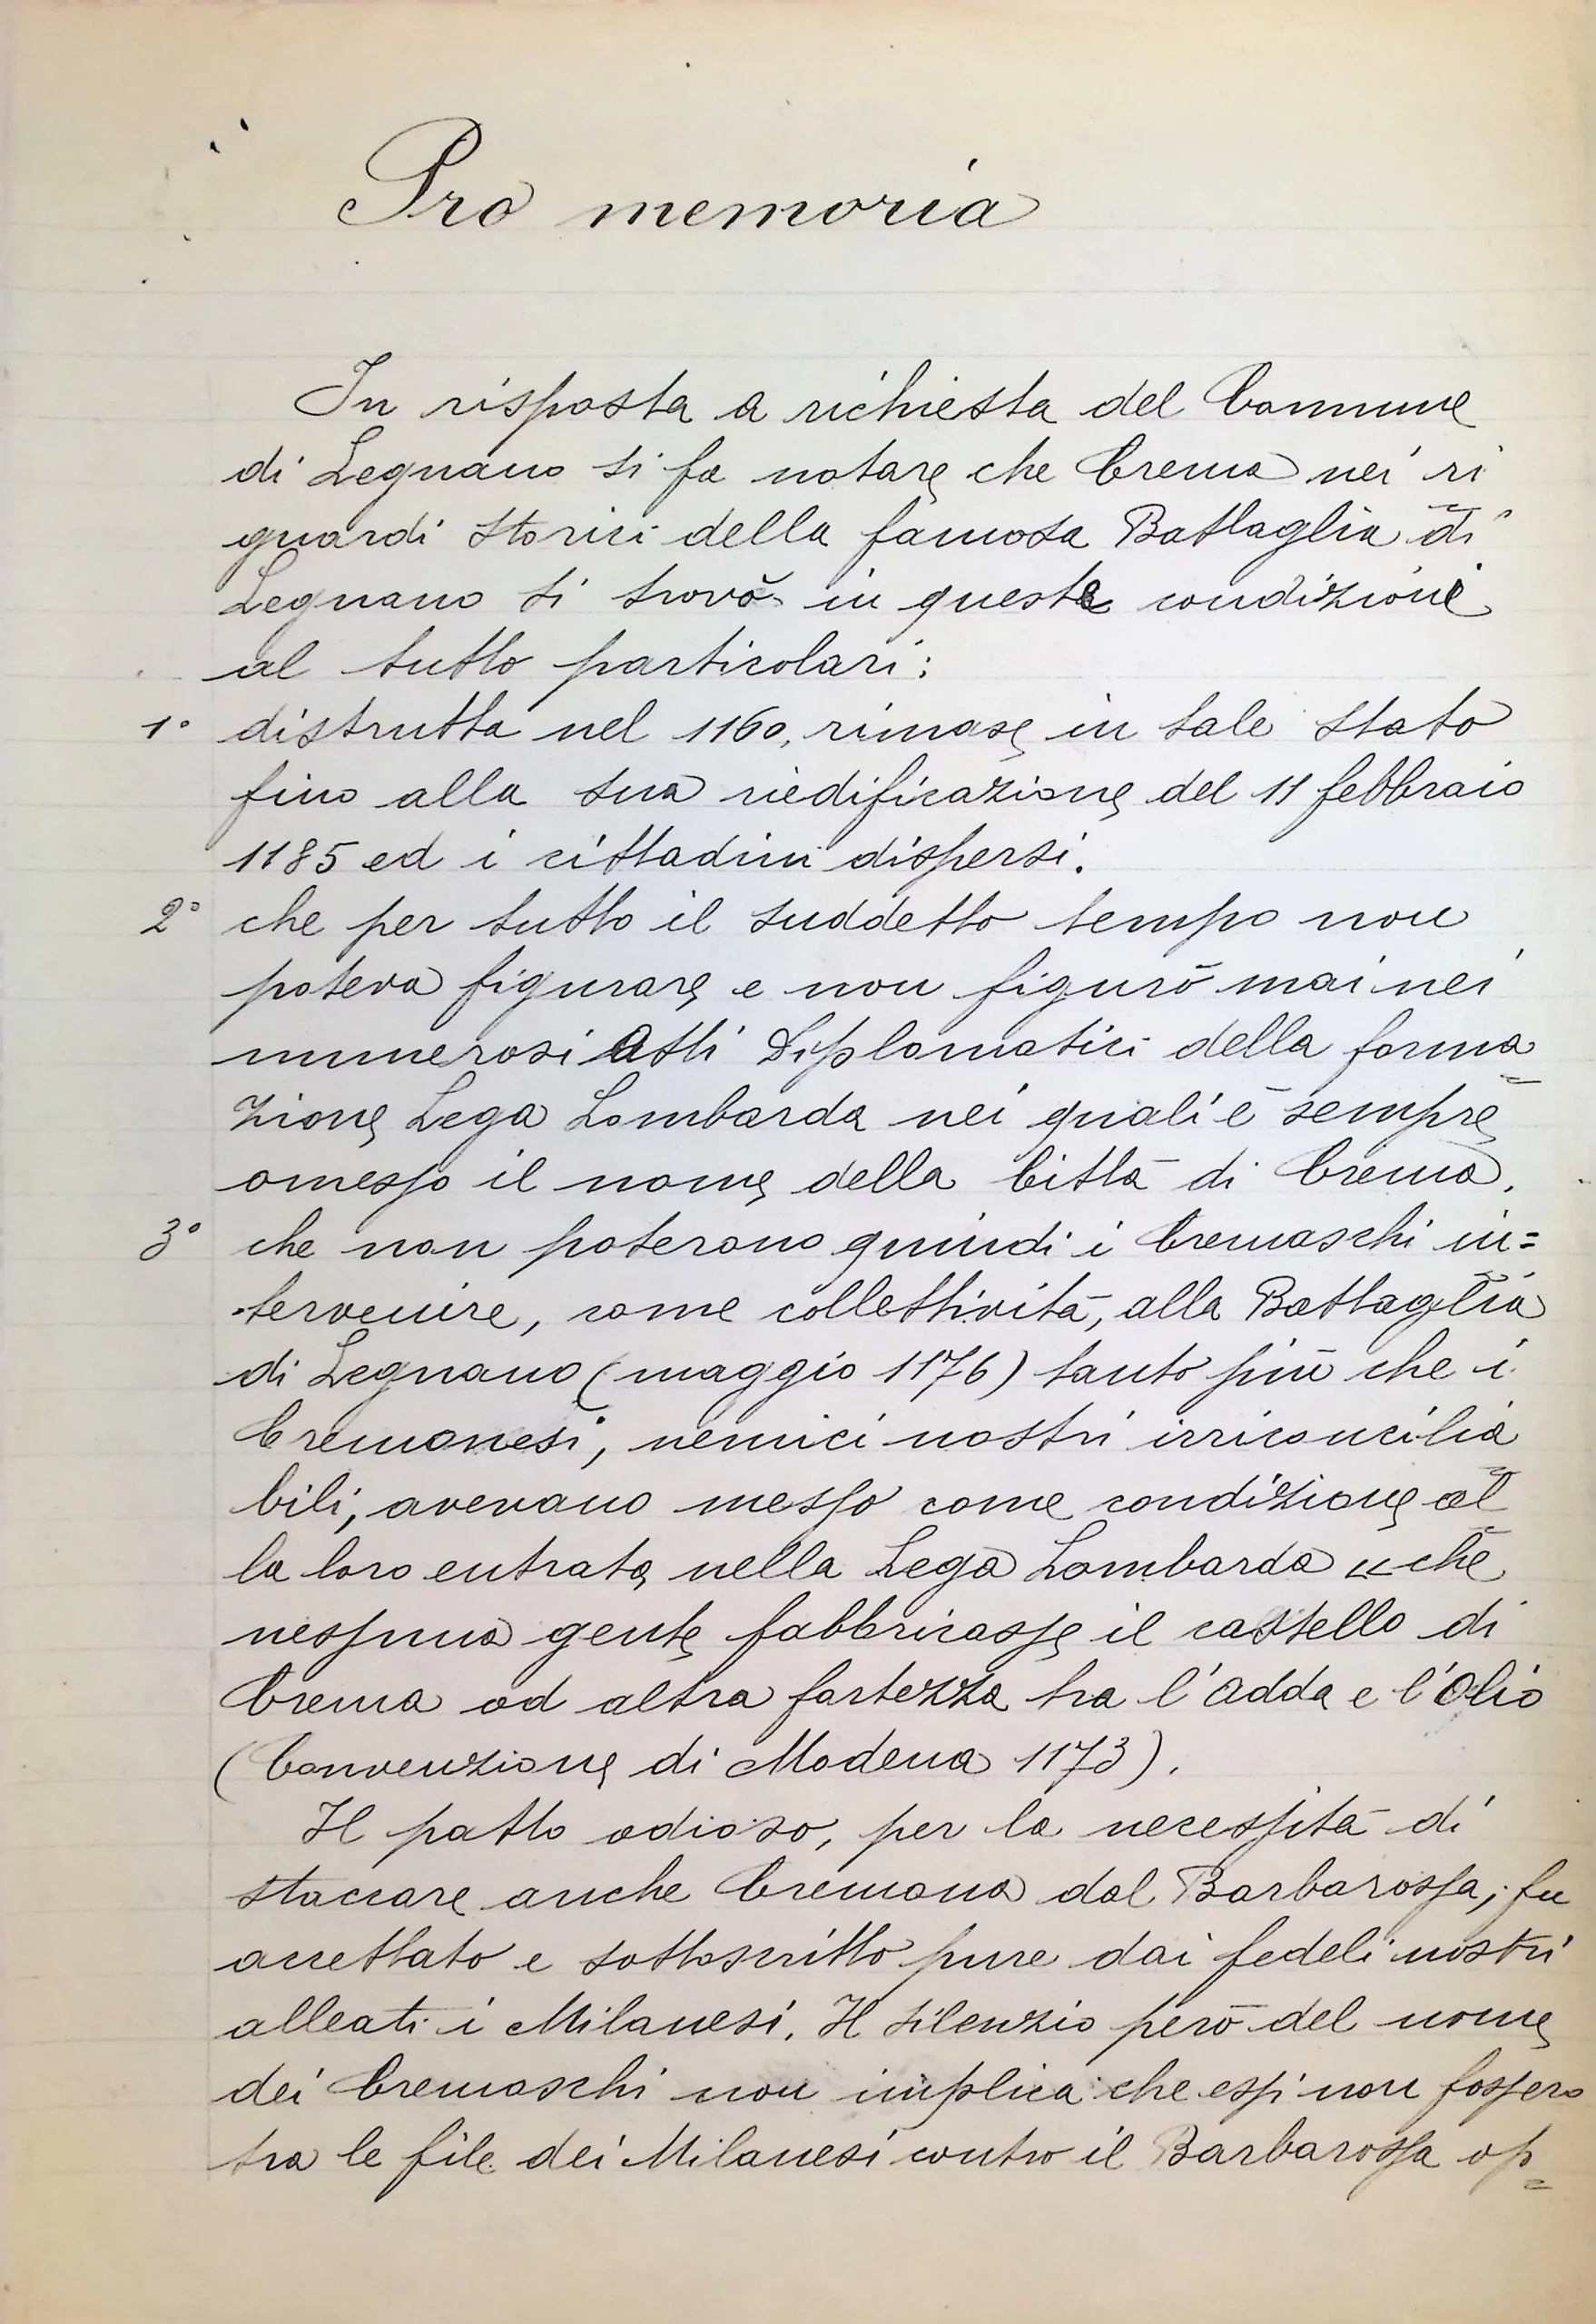 Pro memoria
In risposta a richiesta del Comune
di Legnano si fa notare che Crema nei ri
guardi storici della famosa Battaglia di
Legnano si trovò in queste condizioni
al tutto particolari:
1° distrutta nel 1160, rimase in tale stato
fino alla sua riedificazione del 11 febbraio
1185 ed i cittadini dispersi.
2° che per tutto il suddetto tempo non
poteva figurare e non figurò mai nei
numerosi Atti Diplomatici della forma=
zione Lega Lombarda nei quali è sempre
omesso il nome della Città di Crema.
3° che non poterono quindi i Cremaschi in=
tervenire, come collettività, alla Battaglia
di Legnano (maggio 1176) tanto più che i
Cremonesi, nemici nostri irriconcilia
bili, avevano messo come condizione al=
la loro entrata nella Lega Lombarda "che
nessuna gente fabbricasse il castello di
Crema od altra fortezza tra l'Adda e l'Olio
(Convenzione di Modena 1173).
Il patto odioso, per la necessità di
staccare anche Cremona dal Barbarossa, fu
accettato e sottoscritto pure dai fedeli nostri
alleati i Milanesi. Il silenzio però del nome
dei Cremaschi non implica che essi non fossero
tra le file dei Milanesi contro il Barbarossa op=